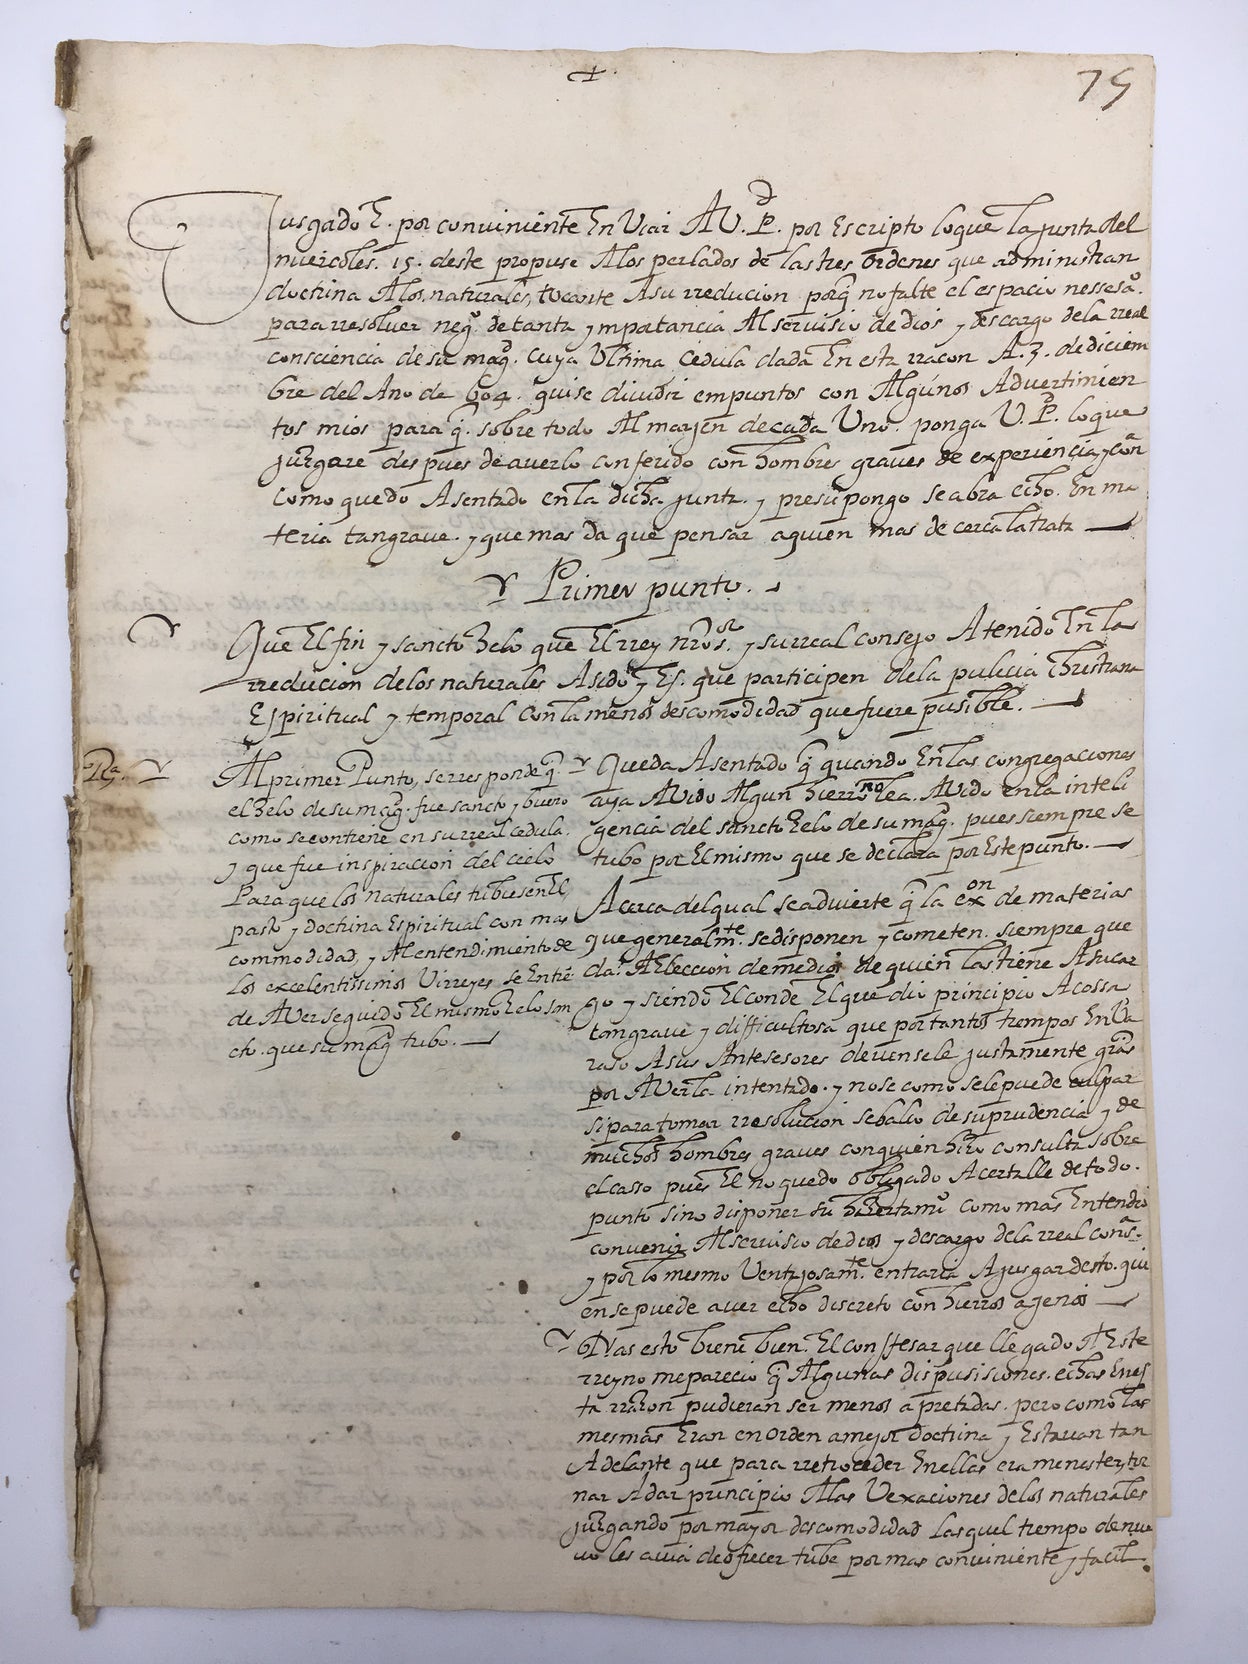 +
75
Jusgado E. por conuiniente Enuiar A V. P.d por Escripto loque la junta del
miercoles. 15. deste propuse Alos perlados de las tres ordenes que administran
doctrina Alos naturales, tocante Asu rreducion porq̄ no falte el espacio nessesao.
para rresoluer nego. de tanta ymportancia Al seruisio de dios y descargo dela rreal
consciencia de su magd. cuya Ultima Cedula dada En esta rraçon A. 3. de diciem
bre del Año de 604. quise diuidir em puntos con Algúnos Aduertimien
tos mios para q̄. sobre todo Al marjen de cada Uno. ponga V. P.d lo que
juzgare despues de auerlo conferido con hombres graues de experiencia y cona
como quedo Asentado en la dicha junta. y presupongo se abra echo. En ma
teria tan graue. y que mas da que pensar a quien mas de cerca la trata
Primer punto.
Que El fin y sancto Zelo que El rrey nro sor. y su rreal consejo A tenido En la
rreducion delos naturales Asido y Es. que participen dela pulicia Christiana
Espiritual y temporal Con la menos descomodidad que fuere pusible.
Ra.
Al primer Punto, se rresponde q̄
el Zelo de su magd. fue sancto y bueno
como se contiene en su rreal cedula.
y que fue inspiracion del cielo
Para que los naturales tubiesen El
pasto y doctrina Espiritual con mas
commodidad, y Al entendimiento de
los excelentissimos Virreyes se Entie
de Auer seguido El mismo Zelo san
cto. que su magd tubo.
Queda Asentado q̄ quando En las congregaciones
aya Auido Algun hierro no le a. Auido en la inteli
gencia del sancto Zelo de su magd. pues siempre se
tubo por El mismo que se declara por Este punto.
Acerca del qual se aduierte q̄ la exon de materias
que generalmte. se disponen y cometen. siempre que
da. A Eleccion de medios de quien las tiene A su car
go y siendo El conde El que dio principio A cossa
tan graue y difficultosa que por tantos tiempos Enba
raso A sus Antesesores deuensele justamente gras
por Auerla intentado. y no se como se le puede culpar
si para tomar rresolucion se balio de su prudencia y de
muchos hombres graues con quien hizo consulta sobre
el casso pues El no quedo obligado A certalle de todo.
punto sino disponer su tratamo como mas Entendio
conuenir Al seruisio de dios y descargo dela rreal cona.
y por lo mesmo Ventajosamte. entraria A jusgar desto. qui
en se puede auer echo discreto con hierros agenos
Mas esto biene bien. El confesar que llegado A Este
rreyno me parecio q̄ Algunas dispusisiones. echas En es
ta rrazon pudieran ser menos apretadas. pero como las
mesmas Eran en orden a mejor doctrina y Estauan tan
Adelante que para rretroceder En ellas era menester tor
nar A dar principio A las Vexaciones delos naturales
juzgando por mayor descomodidad las quel tiempo de nue
uo les auia de ofrecer tube por mas conuiniente y facil